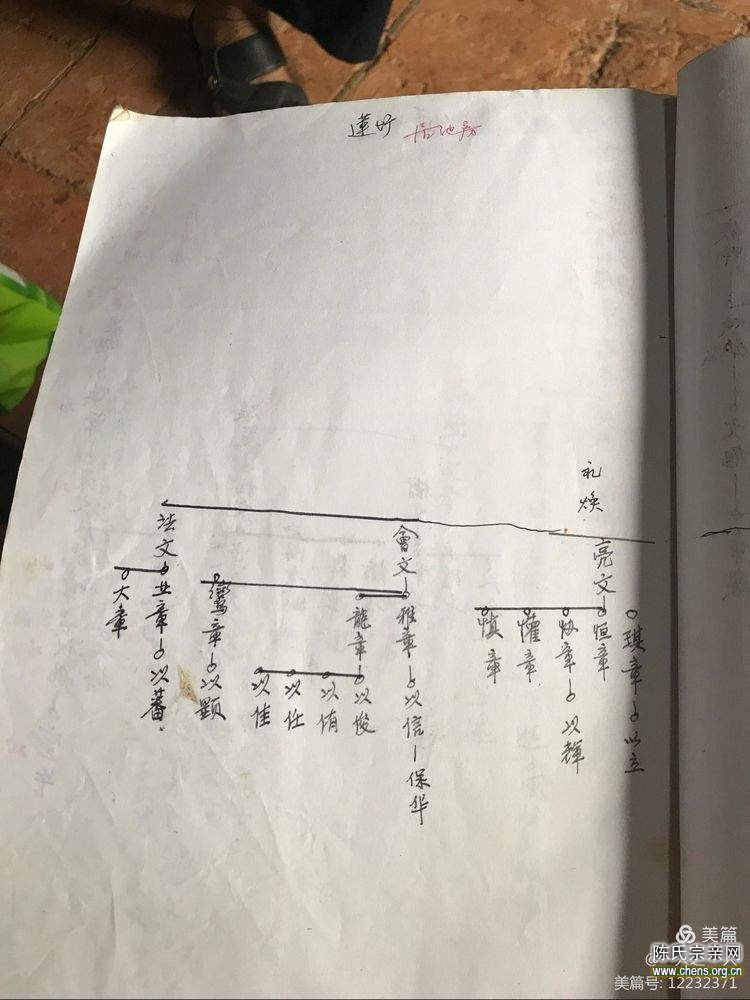 蓮圢
礼焕
亮文
恒章
琪章
以立
章
以輝
慎章
懽章
會文
雅章
以信
保华
龍章
以俊
以侑
以任
以佳
鸞章
以顕
法文
业章
以蕃
大章
美篇
陈氏宗亲网
www.chens.org.cn
美篇号: 12232371